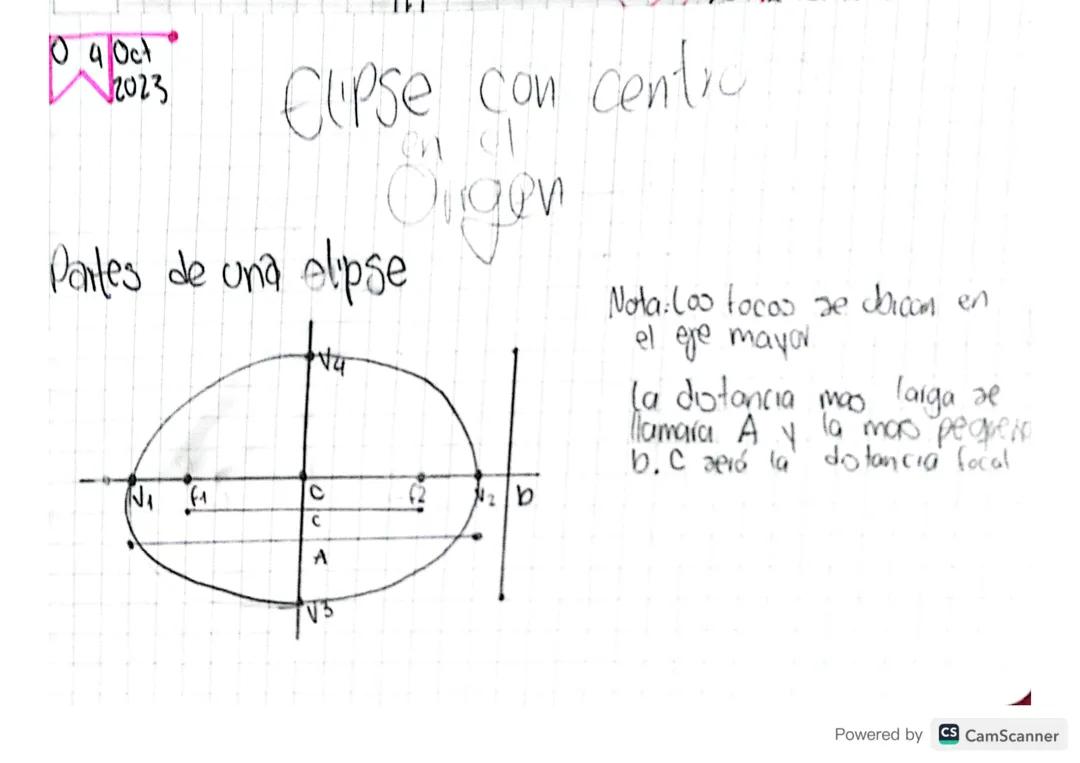 04 Oct
2023
Elipse con centro
en el
Origen
Partes de una elipse
Nota: Los focos se ubican en
el eje mayor
La distancia mas larga se
llamara A y la mas pequeña
b. C será la distancia focal
V4
V1 f1 C f2 V2 b
c
A
V3
Powered by CS CamScanner